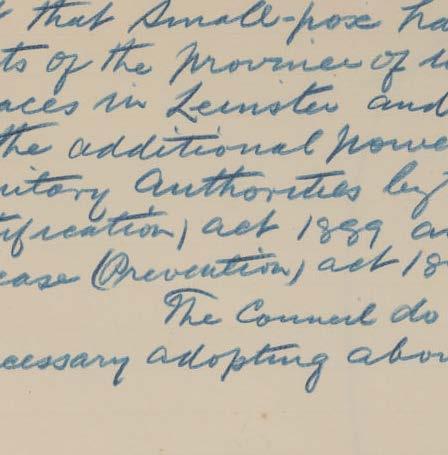 t that Small-pox ha
ts of the Province of U
aces in Leinster and
the additional powe
nitary Authorities by
tification) act 1889 a
ease (Prevention) act 18
The Council do
ecessary adopting abov